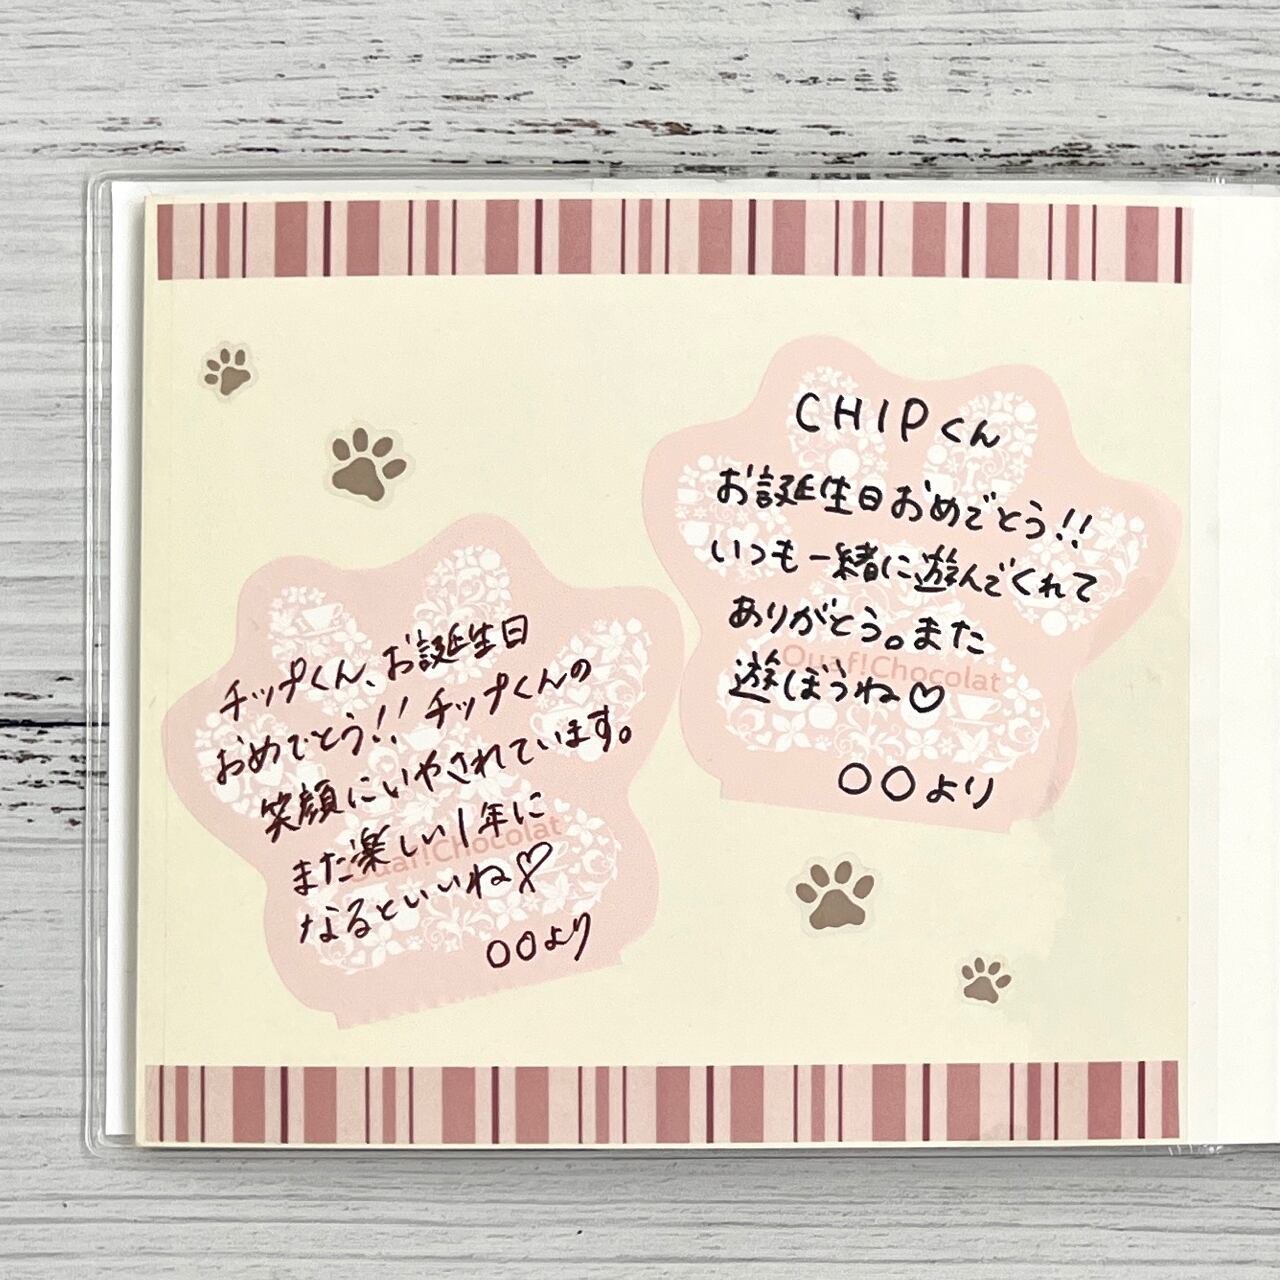 チップくん、お誕生日
おめでとう!! チップくんの
笑顔にいやされています。
また楽しい1年に
なるといいね♡
○○より
Ouaf!Chocolat
CHIPくん
お誕生日おめでとう!!
いつも一緒に遊んでくれて
ありがとう。また
遊ぼうね♡
○○より
Ouaf!Chocolat